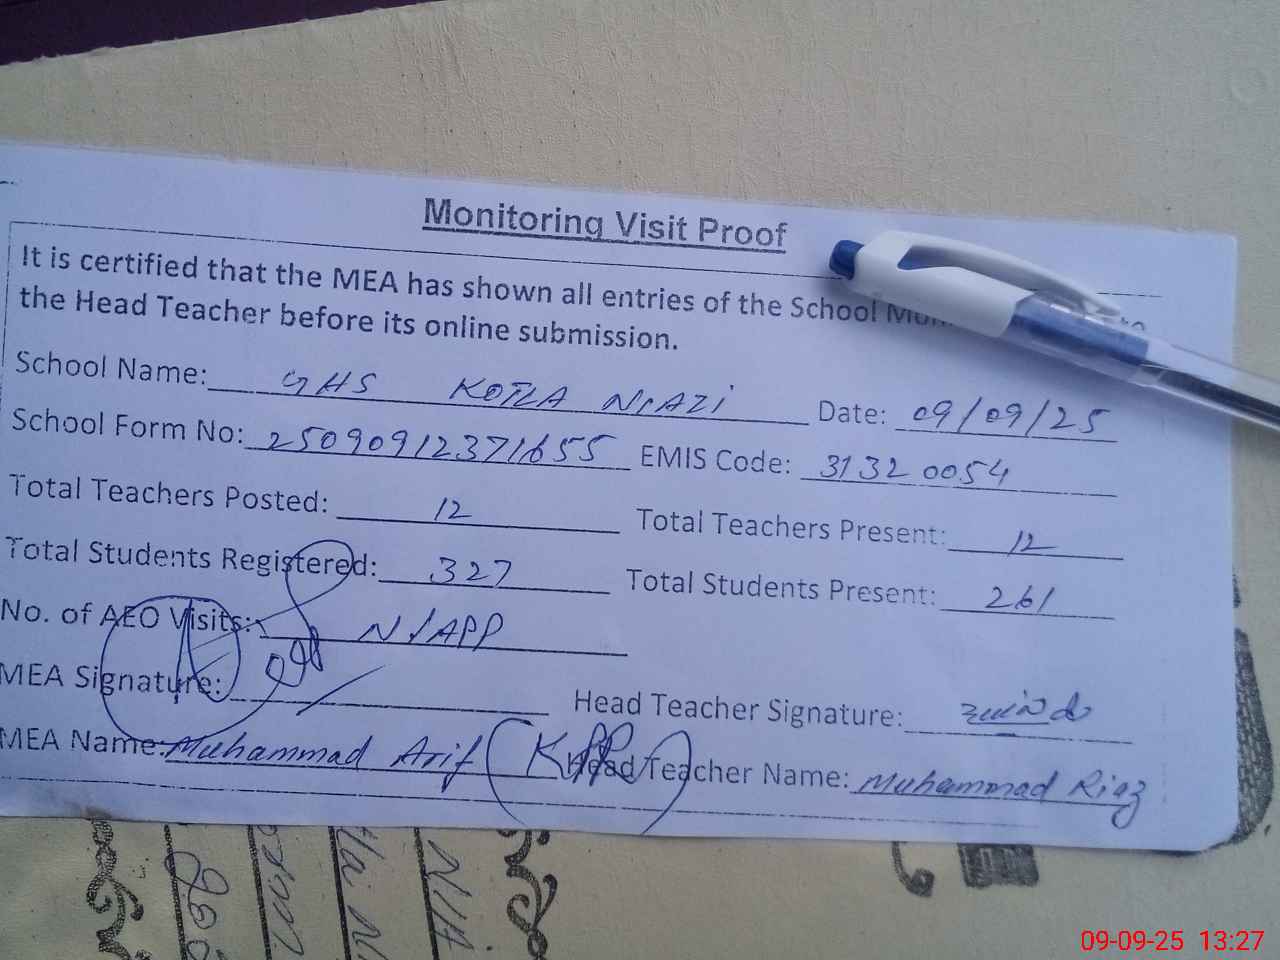 Monitoring Visit Proof
It is certified that the MEA has shown all entries of the School to
the Head Teacher before its online submission.
School Name: GHS KOTLA NIAZI Date: 09/09/25
School Form No: 25090912371655 EMIS Code: 31320054
Total Teachers Posted: 12 Total Teachers Present: 12
Total Students Registered: 327 Total Students Present: 261
No. of AEO Visits: N/APP
MEA Signature: Head Teacher Signature:
MEA Name: Muhammad Arif Head Teacher Name: Muhammad Riaz
09-09-25 13:27